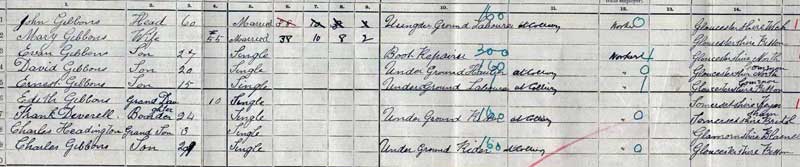 1. 2. 3. 4. 5. 6. 7. 8. 9. 10. 11. 12. 13. 14.
John Gibbons Head 60 Married 38 10 8 2 Under Ground Labourer at Colliery 160 Worker 0 Gloucestershire
2 Mary Gibbons Wife 55 Married 38 10 8 2 Gloucestershire Kesson
3 Evan Gibbons Son 27 Single Boot Repairer 300 Worker 4 Gloucestershire North
4 David Gibbons Son 20 Single Under Ground at Colliery 160 " 0 Gloucester North Common
5 Ernest Gibbons Son 15 Single Under Ground Labourer at Colliery " 1 Gloucestershire Kesson
6 Edith Gibbons Grand Daughter 10 Single Somersetshire
7 Frank Deverell Boarder 24 Single Under Ground Rider at Colliery 160 " 0 Somersetshire Bristol
8 Charles Headington Grand Son 13 Single Glamornshire
9 Charles Gibbons Son 29 Single Under Ground Rider at Colliery 160 " 0 Gloucestershire Kesson